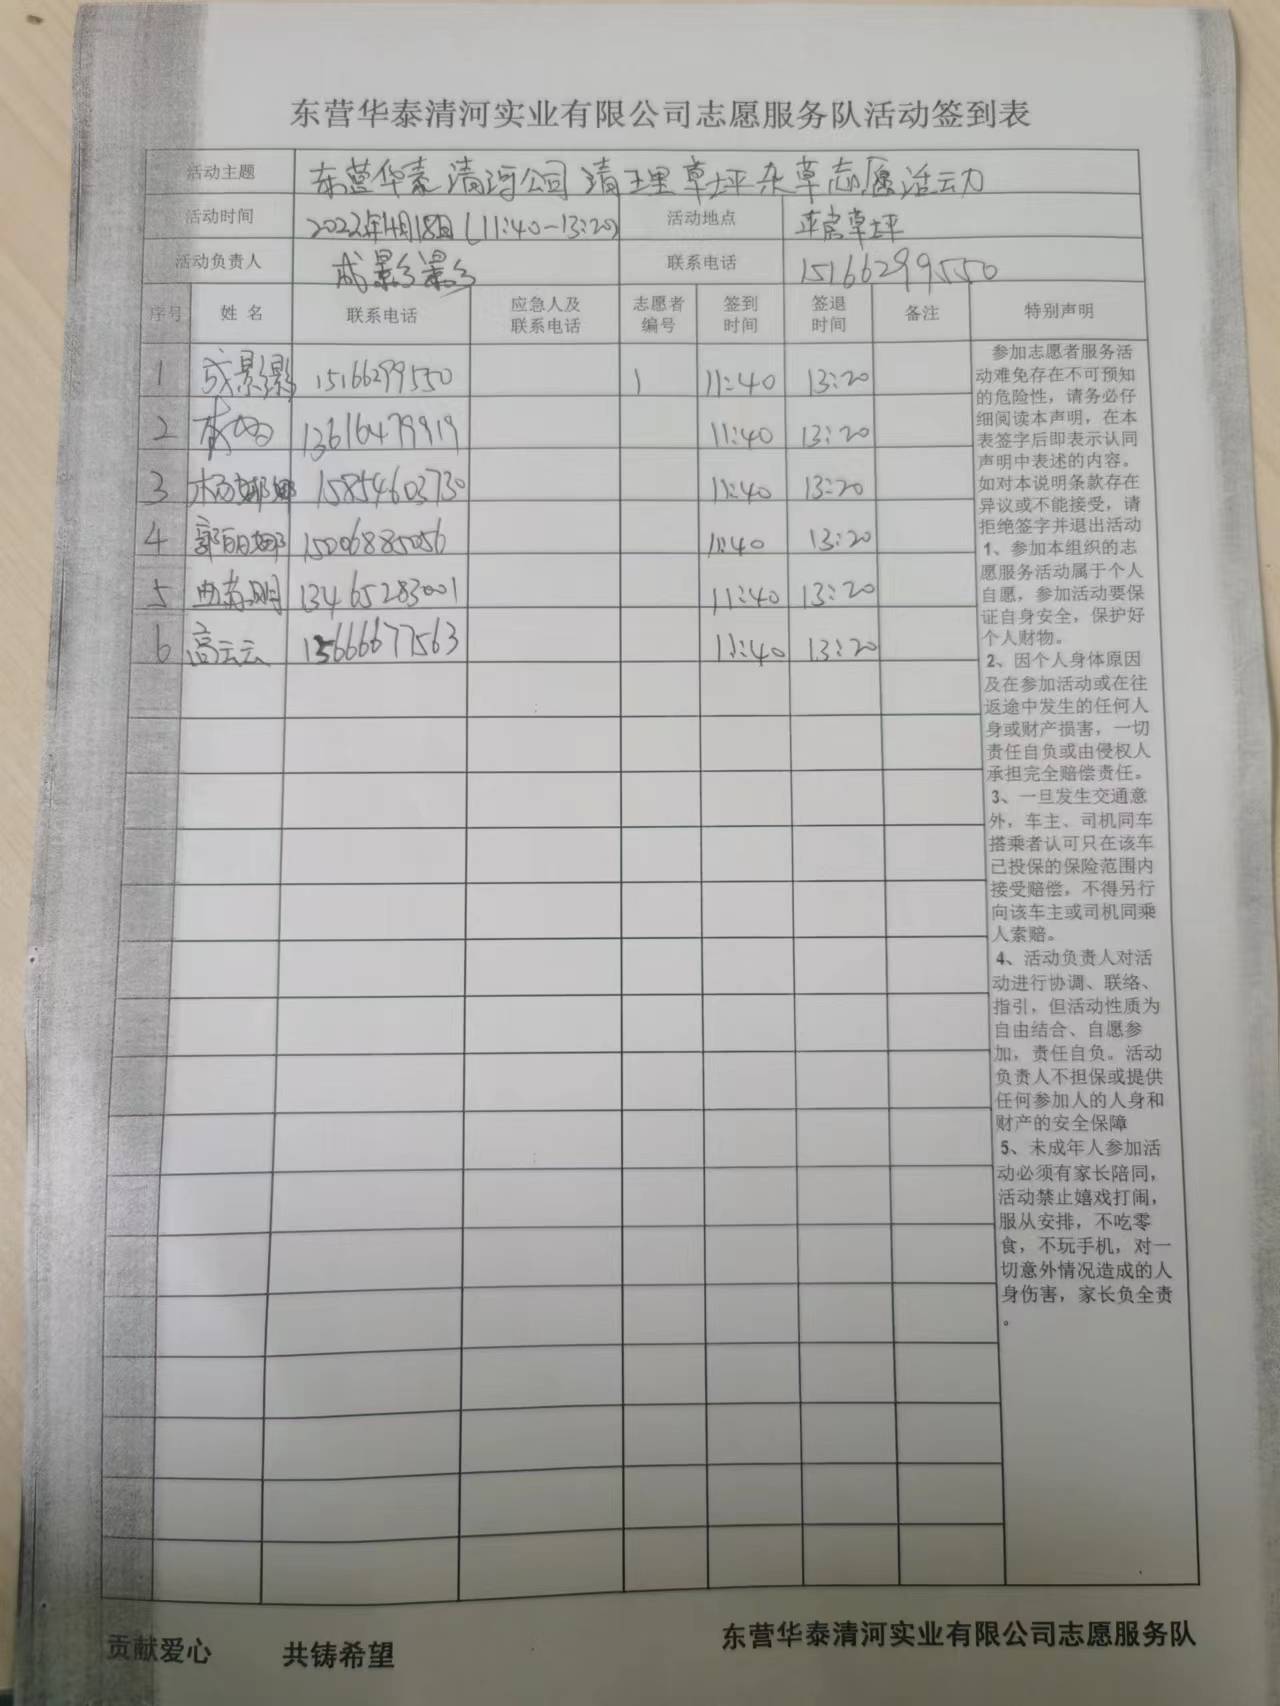 东营华泰清河实业有限公司志愿服务队活动签到表
活动主题 东营华泰清河公司清理草坪杂草志愿活动
活动时间 2022年4月18日(11:40-13:20) 活动地点 草坪
活动负责人 成影影 联系电话 15166299550
序号 姓名 联系电话 应急人及联系电话 志愿者编号 签到时间 签退时间 备注 特别声明
1 成影影 15166299550 1 11:40 13:20
2 13616479919 11:40 13:20
3 杨娜娜 15854603730 11:40 13:20
4 郭丽娜 15006885056 11:40 13:20
5 13465283001 11:40 13:20
6 高云云 15666677563 11:40 13:20
参加志愿者服务活
动难免存在不可预知
的危险性，请务必仔
细阅读本声明，在本
表签字后即表示认同
声明中表述的内容。
如对本说明条款存在
异议或不能接受，请
拒绝签字并退出活动
1、参加本组织的志
愿服务活动属于个人
自愿，参加活动要保
证自身安全，保护好
个人财物。
2、因个人身体原因
及在参加活动或在往
返途中发生的任何人
身或财产损害，一切
责任自负或由侵权人
承担完全赔偿责任。
3、一旦发生交通意
外，车主、司机同车
搭乘者认可只在该车
已投保的保险范围内
接受赔偿，不得另行
向该车主或司机同乘
人索赔。
4、活动负责人对活
动进行协调、联络、
指引，但活动性质为
自由结合、自愿参
加，责任自负。活动
负责人不担保或提供
任何参加人的人身和
财产的安全保障
5、未成年人参加活
动必须有家长陪同，
活动禁止嬉戏打闹，
服从安排，不吃零
食，不玩手机，对一
切意外情况造成的人
身伤害，家长负全责
。
贡献爱心 共铸希望 东营华泰清河实业有限公司志愿服务队